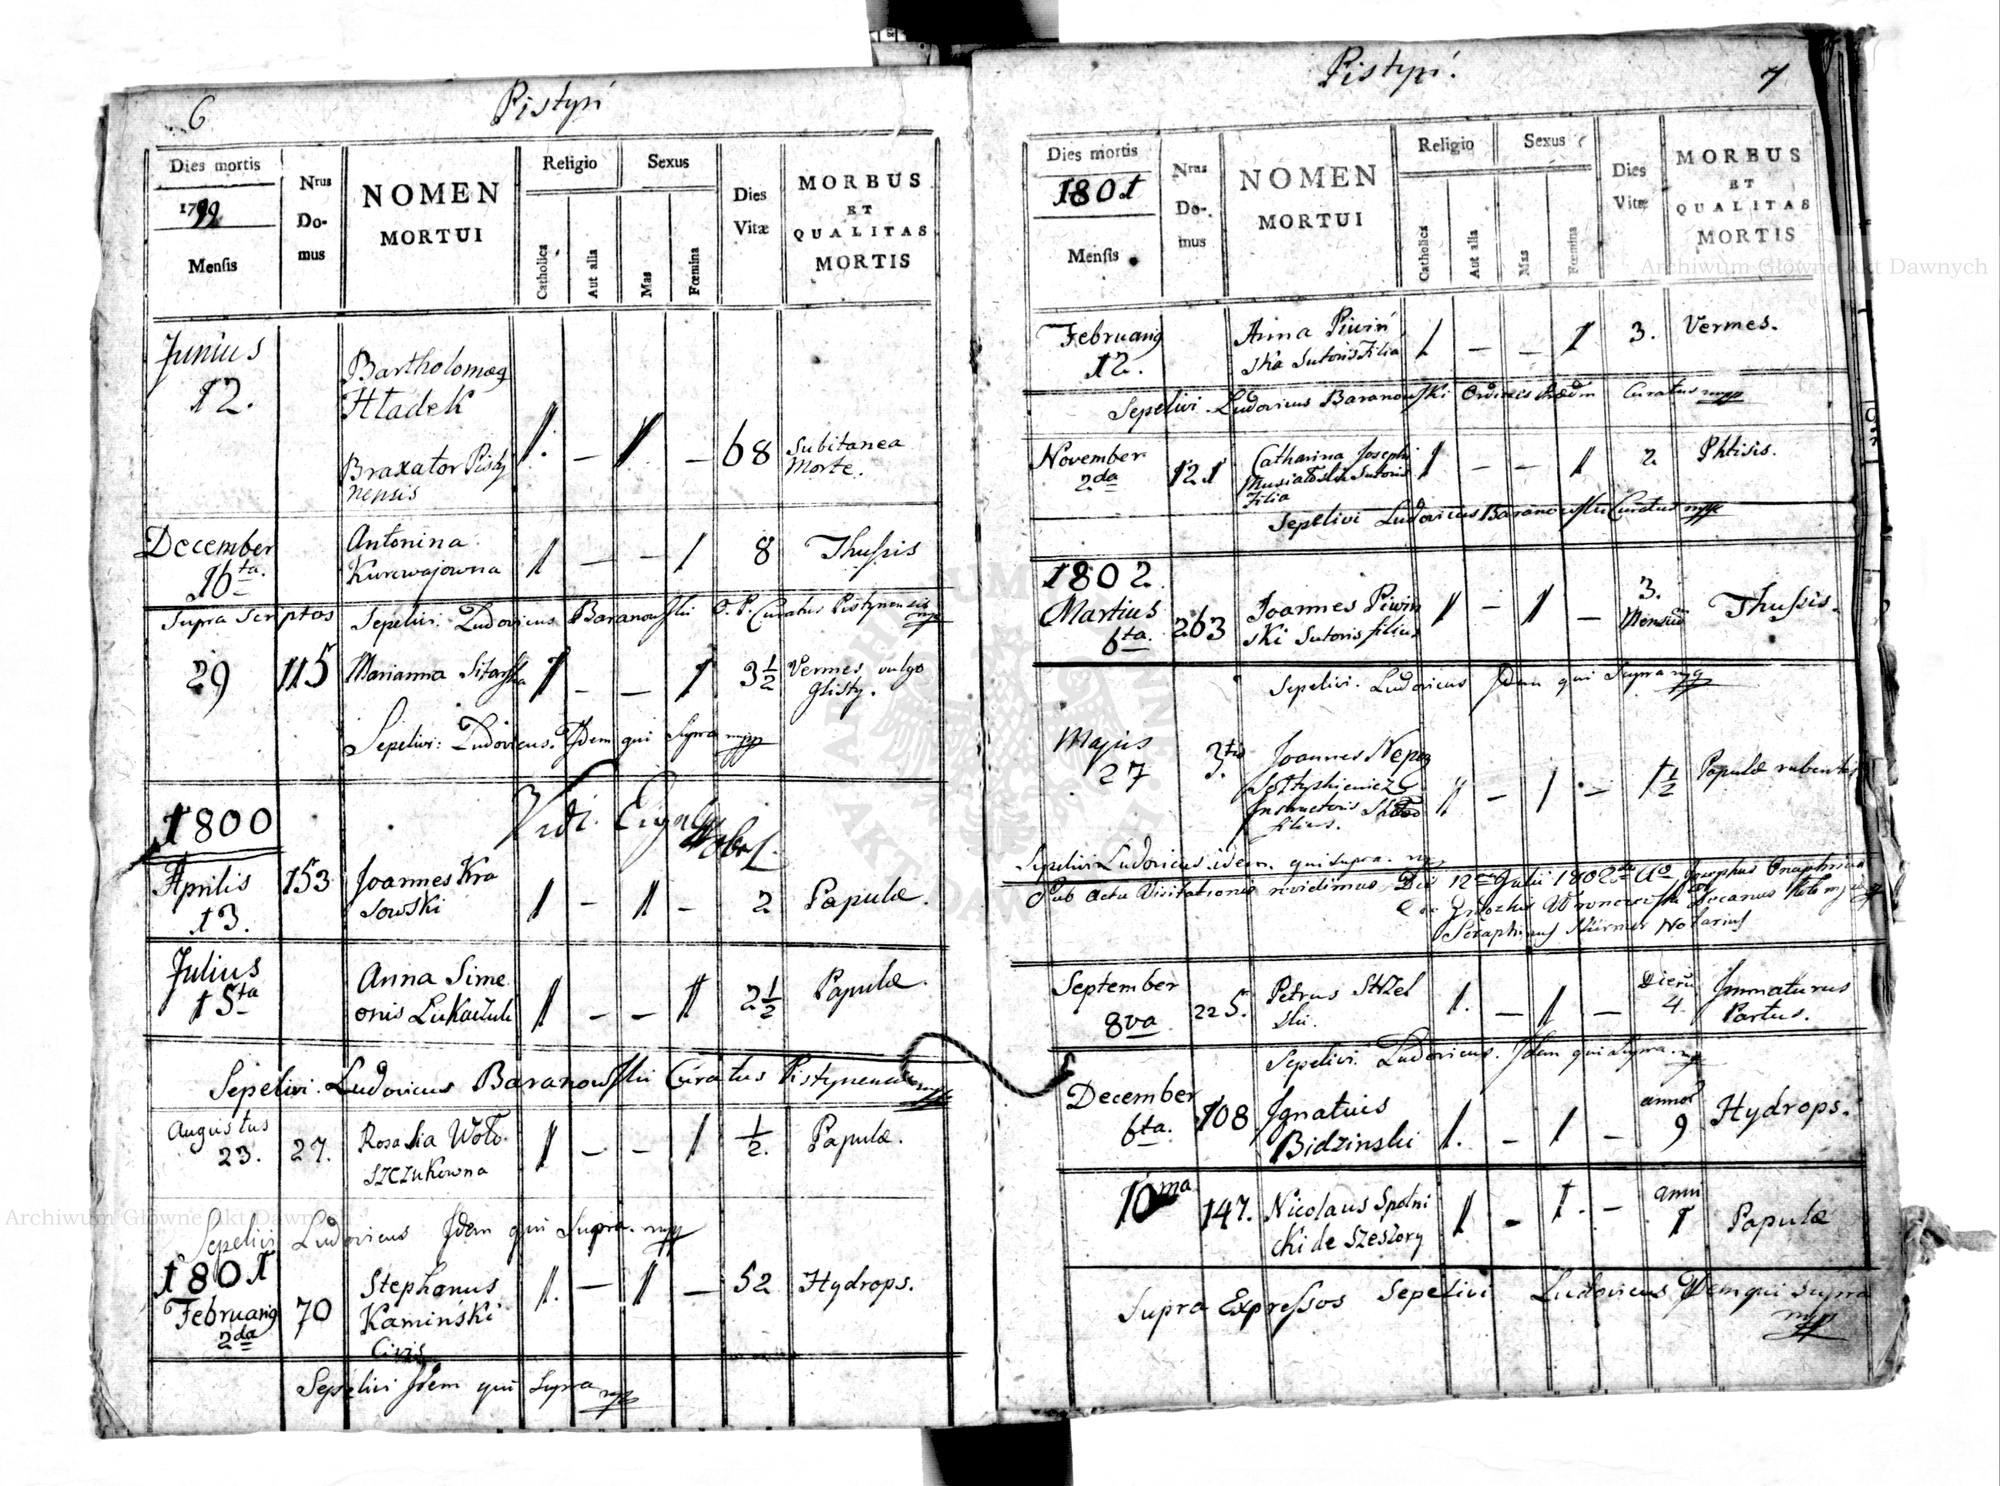 6
Pistyń
Dies mortis
1799
Mensis
Nrus Do- mus
NOMEN
MORTUI
Religio
Catholica
Aut alia
Sexus
Mas
Fœmina
Dies
Vitæ
MORBUS
ET
QUALITAS
MORTIS
Junius
12.
Bartholomæg
Hładek
Braxator Pisty
nensis
1. – 1 – 68
Subitanea
Morte.
December
16ta.
Antonina
Kurewajowna
1 – – 1 8 Thussis
Supra Scriptos Sepelivi: Ludovicus Baranowski O. P. Curatus Pistynensis mpp
29 115 Marianna Sitarska 1 – – 1 3 1/2 Vermes vulgo
glisty.
Sepelivi: Ludovicus. Idem qui Supra mpp
1800
Vidi.
Aprilis
13.
153 Joannes Kra
sowski
1 – 1 – 2 Papulæ.
Julius
15ta
Anna Sime
onis Lukaczuk
1 – – 1 2 1/2 Papulæ.
Sepelivi. Ludovicus Baranowski Curatus Pistynensis mpp
Augustus
23. 27. Rosalia Woło
szczukowna
1 – – 1 1/2. Papulæ.
Sepelivi Ludovicus Idem qui Supra. mpp
1801
Februarig
2da
70 Stephanus
Kamiński
Civis
1. – 1 – 52 Hydrops.
Sepelivi Idem qui Supra mpp
Pistyń.
7
Dies mortis
1801
Mensis
Nrus Do- mus
NOMEN
MORTUI
Religio
Catholica
Aut alia
Sexus
Mas
Fœmina
Dies
Vitæ
MORBUS
ET
QUALITAS
MORTIS
Februarig
12.
Anna Piwiń
ska Sutoris Filia
1 – – 1 3. Vermes.
Sepelivi Ludovicus Baranowski Ordinis Præd Curatus mpp
November
2da
121 Catharina Josephi
Musiałoski Sutoris
Filia
1 – – 1 2 Phtisis.
Sepelivi Ludovicus Baranowski Curatus mpp
1802
Martius
6ta.
263 Joannes Piwin
ski Sutoris filius
1 – 1 – 3.
Mensiu
Thussis.
Sepelivi. Ludovicus Idem qui Supra mpp
Majus
27
Joannes Nepog
Sołtyskiewicz
Instructoris
filius.
1 – 1 – 1 1/2 Papulæ rubentes
Sepelivi Ludovicus idem. qui supra. mpp
Sub actu Visitationis revidimus Die 12 Julii 1802
Wronowski Decanus
Seraphinus Notarius
September
8va
225. Petrus Strzel
ski.
1. – 1 – Dierū
4. Immaturus
Partus.
Sepelivi. Ludovicus. Idem qui Supra. mpp
December
6ta.
108 Ignatius
Bidzinski
1. – 1 – annor
9 Hydrops.
10ma 147. Nicolaus Spolni
cki de Szeszory
1 – 1. – anni
1 Papulæ
Supra Expressos Sepelivi Ludovicus Idem qui Supra
mpp
Archiwum Główne Akt Dawnych
Archiwum Główne Akt Dawnych